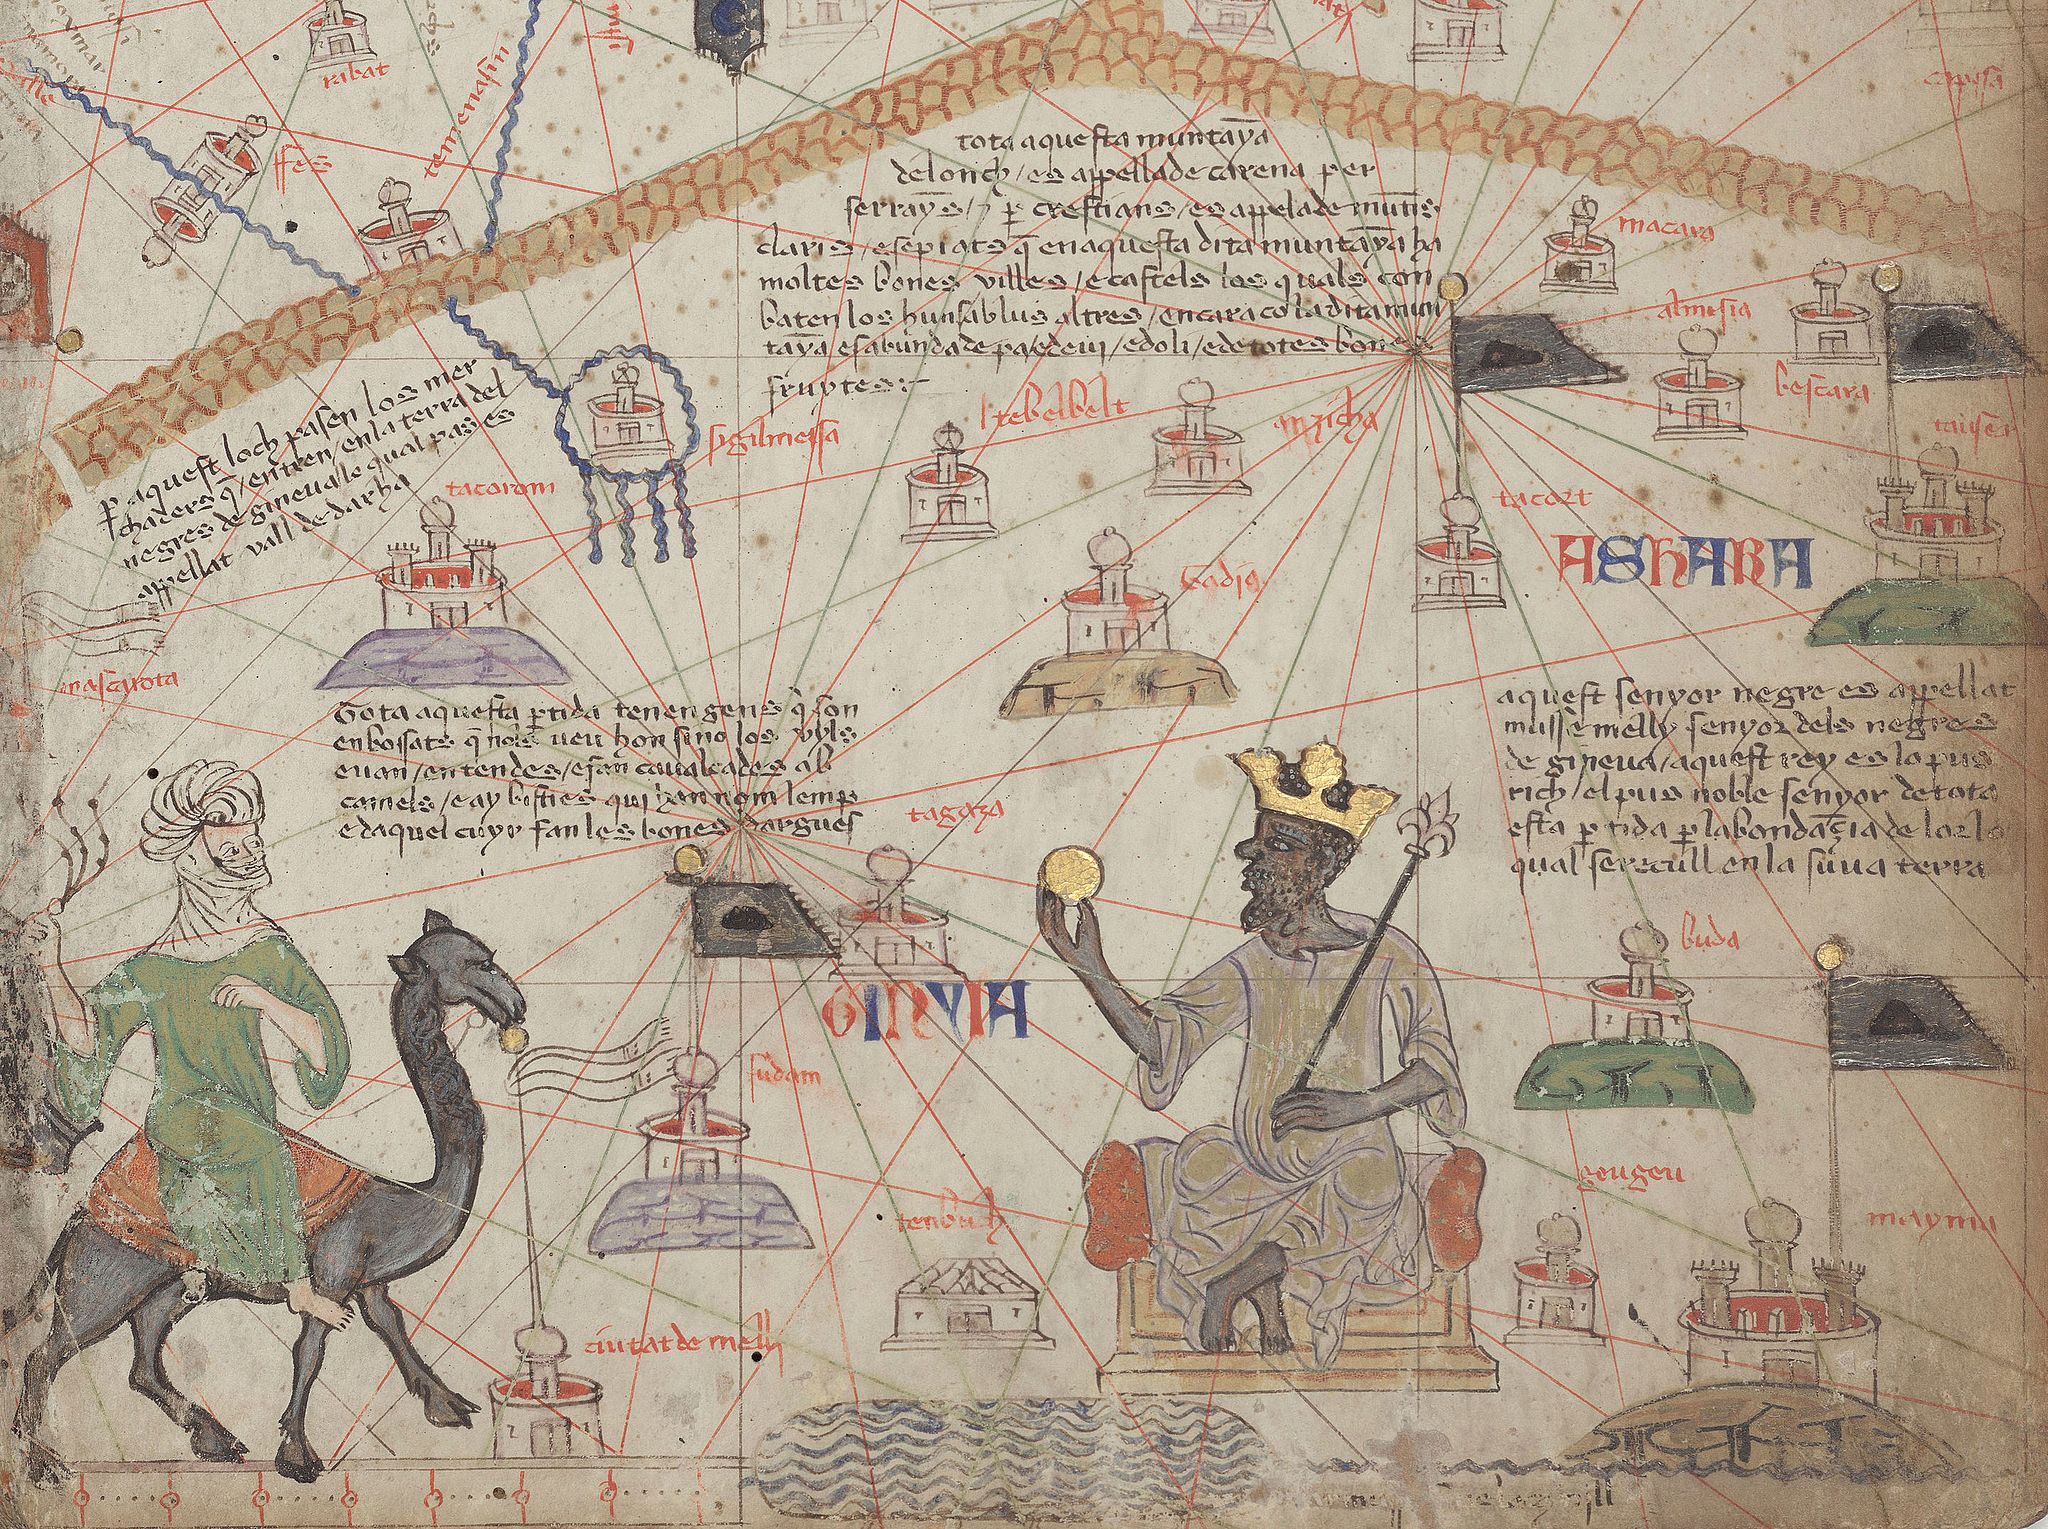 rabat
temenasin
ffes
capisa
tota aquesta muntāya
de lonch / es appellade carena per
serrayns / ⁊ p̱ crestians / es appelade muntis
claris / e sepiats q̄ en aquesta dita muntāya ha
moltes bones villes / e castels los quals con
baten los huns ab lus altres / encara co la dita mun
tāya es abunda de pa e de vi / e doli / e de totes bones
fruytes :-
macara
almsia
bescara
tauser
ltebelbelt
anzicha
tacort
p̱ aquest loch pasen los mer
chaders q̄ / entren / en la terra del
negres de gineva lo qual pas es
appellat vall de darha
sigilmessa
tacorom
ASHARA
Gadia
mascarota
Tota aquesta p̱tida tenen gens q̄ son
enbossats q̄ nols veu hom sino los uyls
e van / en tendes / e fan cavalcades ab
camels / e ay bisties qui han nom lemp
e daquel cuyr fan les bones dargues
aquest senyor negre es appellat
musse melly senyor dels negres
de gineva / aquest rey es lo pus
rich / el pus noble senyor de tota
esta p̱tida p̱ labondācia de lor lo
qual se recull en la suua terra
tagaza
GINYIA
buda
sudam
tenbuch
geugeu
mayma
ciutat de melli